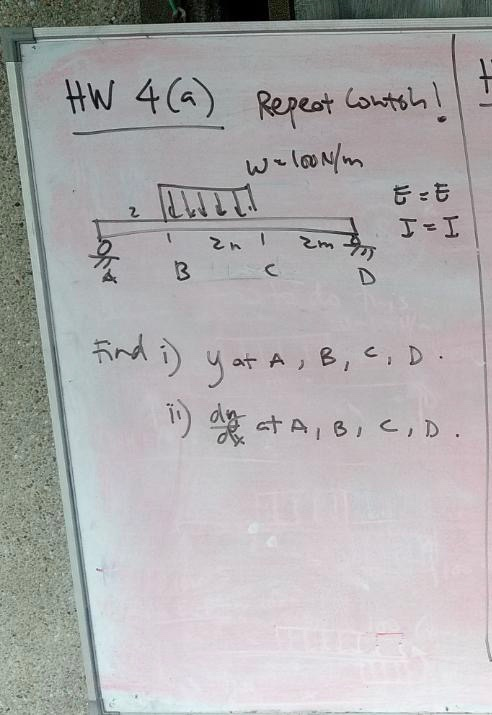 HW 4(a) Repeat Contoh!
W=100N/m
2
E = E
I = I
2m 2m
A B C D
Find i) y at A, B, C, D.
ii) dy/dx at A, B, C, D.